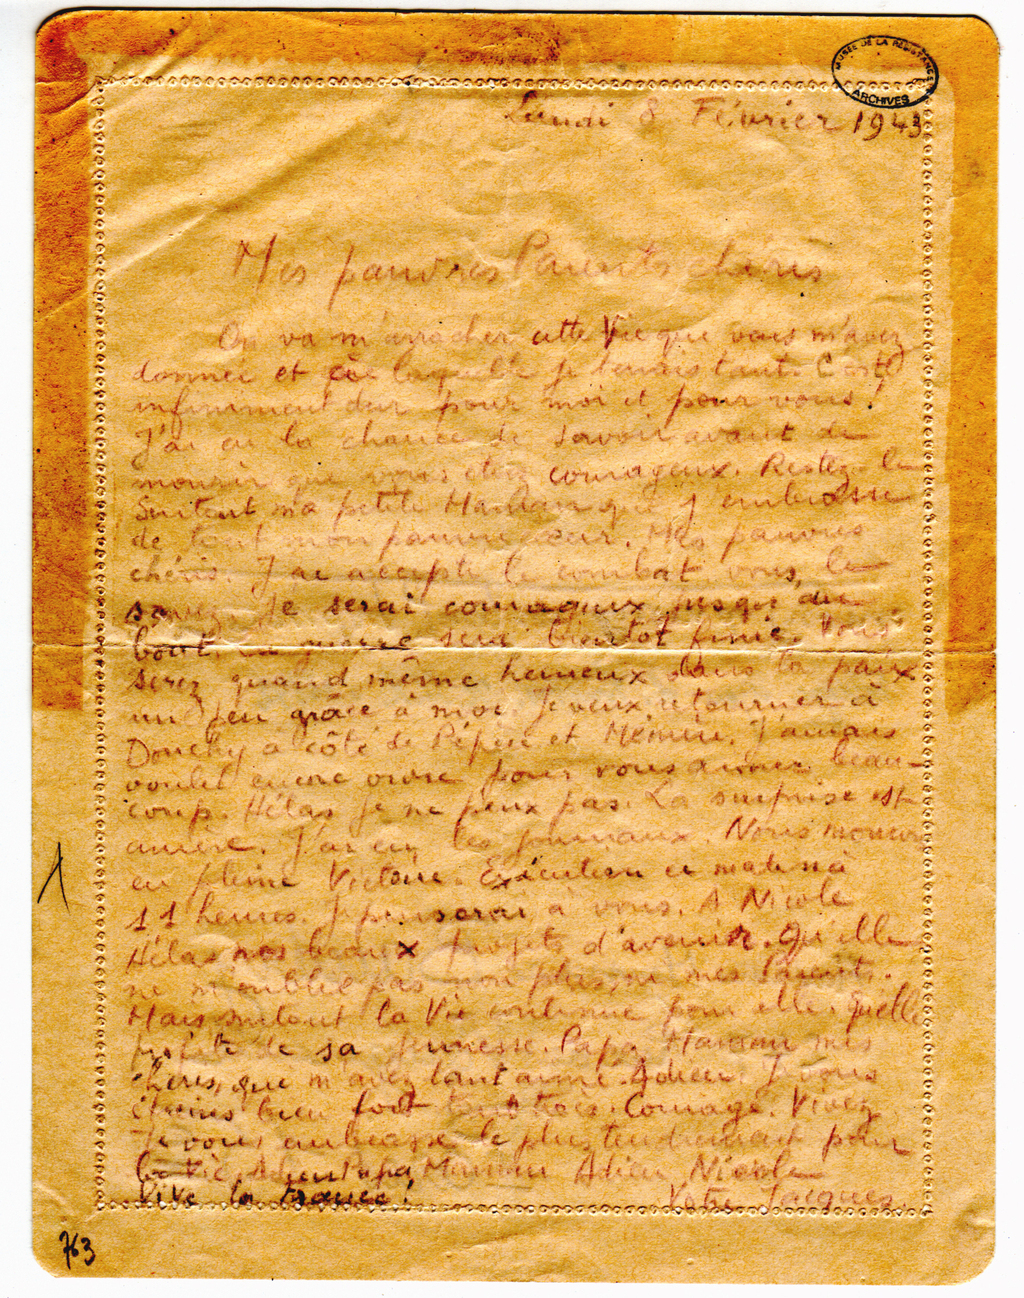 MUSÉE DE LA RÉSISTANCE
ARCHIVES
Lundi 8 Février 1943
Mes pauvres Parents chéris
On va m'arracher cette Vie que vous m'avez
donnée et à laquelle je tenais tant. C'est
infiniment dur pour moi et pour vous!
J'ai eu la chance de savoir avant de
mourir que vous étiez courageux. Restez-le
Surtout ma petite Maman que j'embrasse
de tout mon pauvre cœur. Mes pauvres
chéris. J'ai accepté le combat, vous le
savez. Je serai courageux jusqu'au
bout. La guerre sera bientôt finie. Vous
serez quand même heureux dans la paix
un peu grâce à moi. Je veux retourner à
Douchy à côté de Pépère et Mémère. J'aurais
voulu encore vivre pour vous aimer beau-
coup. Hélas je ne peux pas. La surprise est
amère. J'ai eu les journaux. Nous mourons
en pleine Victoire. Exécution ce matin à
11 heures. Je penserai à vous. A Nicole
Hélas nos beaux projets d'avenir. Qu'elle
ne m'oublie pas non plus, ni mes Parents.
Mais surtout la Vie continue pour elle. Qu'elle
profite de sa jeunesse. Papa, Maman mes
chéris, qui m'avez tant aimé. Adieu. Je vous
étreins bien fort tous trois. Courage. Vivez
Je vous embrasse le plus tendrement pour
la Vie. Adieu Papa, Maman Adieu Nicole
Vive la France! Votre Jacques
1
763